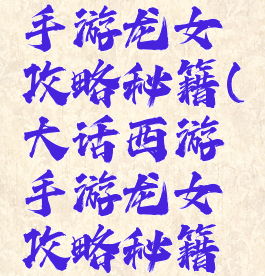 手游龙女
攻略秘籍(
大话西游
手游龙女
攻略秘籍